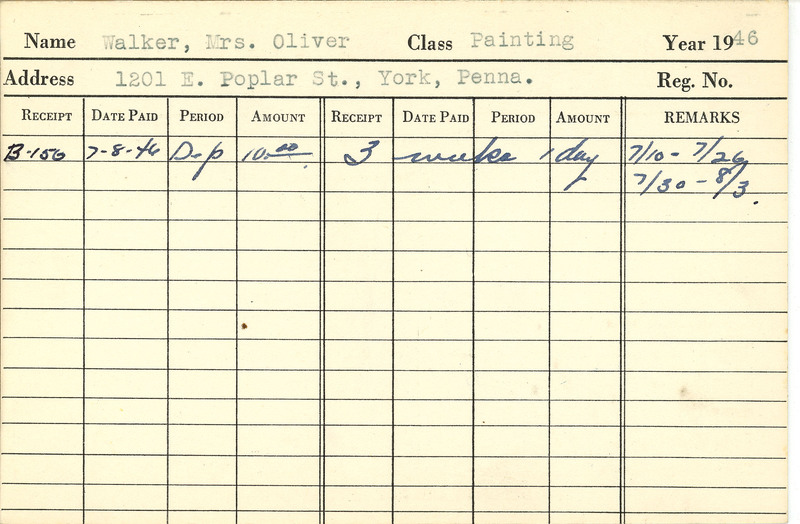 Name Walker, Mrs. Oliver Class Painting Year 1946
Address 1201 E. Poplar St., York, Penna. Reg. No.
RECEIPT DATE PAID PERIOD AMOUNT RECEIPT DATE PAID PERIOD AMOUNT REMARKS
B-150 7-8-46 Dep 10.00 3 weeks 1 day 7/10 - 7/26
7/30 - 8/3.